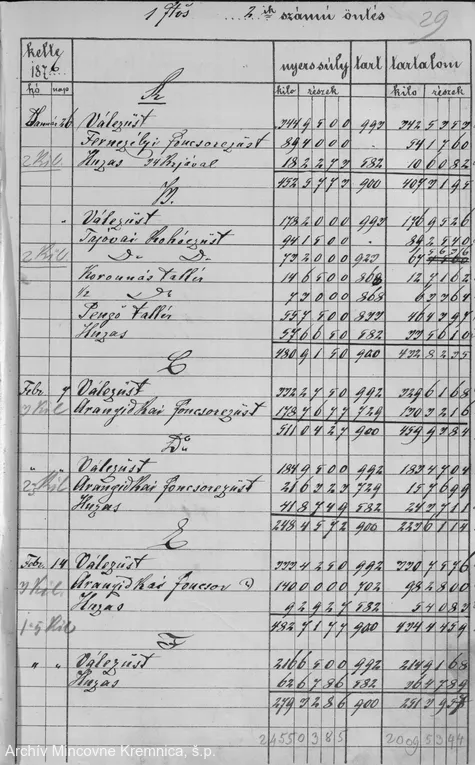 1 ... 2 ik számú öntés
29
kelte 1876
nyerssúly tart tartalom
hó nap kiló részek kiló részek
A.
Január 26 Válezüst 344 9500 993 342 5353
Fernezélyi foncsorezüst 89 4000 . 54 1760
Huzas 18 2273 582 10 6082
452 5773 900 407 3195
B.
" Válezüst 178 2000 993 176 9526
94 1500 .
Do Do 73 2000 923 67 5636
Koronás tallér 14 6500 868 12 7162
1/2 Do 73 0000 868 63 3640
Pengő tallér 55 7500 833 46 4397
Huzas 57 6650 582 33 5610
480 9150 900 432 8235
C
Febr. 7 Válezüst 332 2750 992 329 6168
Aranyidkai foncsorezüst 178 7677 729 130 3216
511 0427 900 459 9384
D
" " Válezüst 184 9500 992 183 4704
Aranyidkai foncsorezüst 21 6323 729 15 7699
Huzas 41 8749 582 24 3711
248 4572 900 223 6114
E
Febr. 14 Válezüst 333 4250 992 330 7576
Aranyidkai foncsor 140 0000 702 98 2800
Huzas 9 2927 582 5 4083
482 7177 900 434 4459
F
" " Válezüst 216 6500 992 214 9168
Huzas 62 6786 582 36 4789
279 3286 900 251 3957
2455 0385 2009 5344
Archív Mincovne Kremnica, š.p.